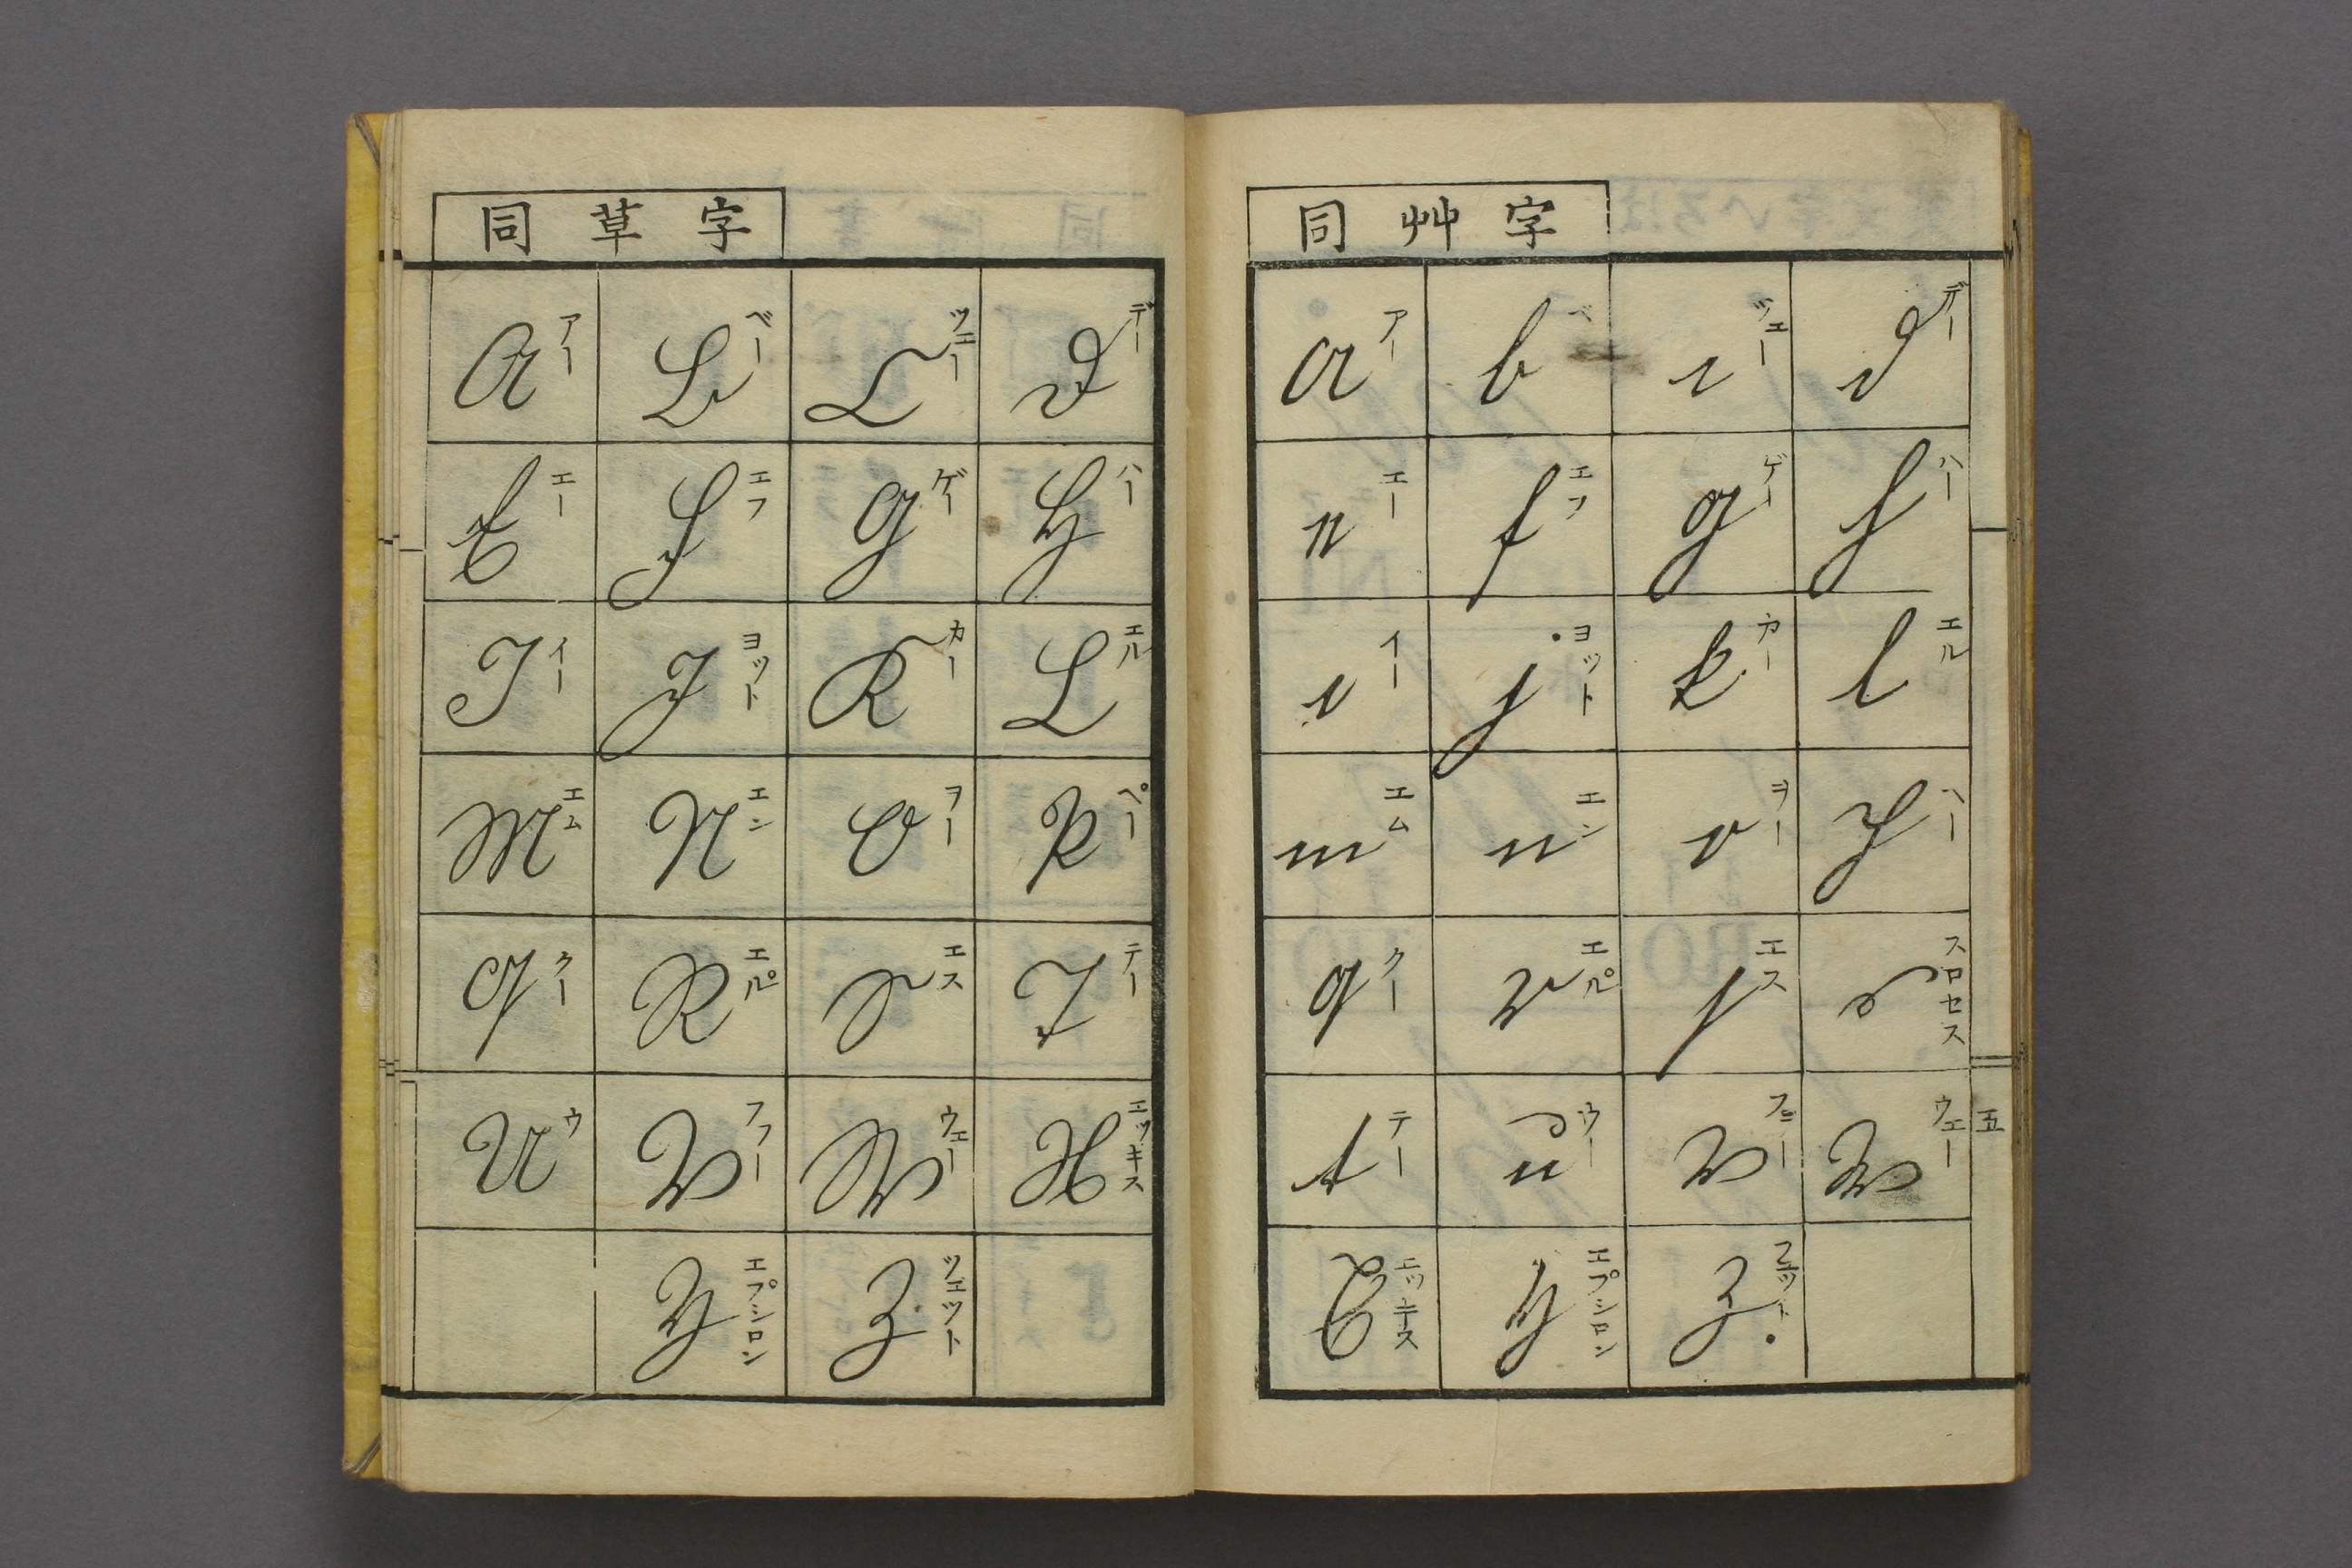 同草字
A アー B ベー C ツエー D デー
E エー F エフ G ゲー H ハー
I イー J ヨット K カー L エル
M エム N エン O ヲー P ペー
Q クー R エル S エス T テー
U ウ V フフー W ウエー X エッキス
Y エプシロン Z ツェット
同艸字
a アー b ベ c ツエー d デー
e エー f エフ g ゲー h ハー
i イー j ヨット k カー l エル
m エム n エン o ヲー p ペー
q クー r エル s エス s スロセス
t テー u ウー v w ウエー
五
x エッキス y エプシロン z